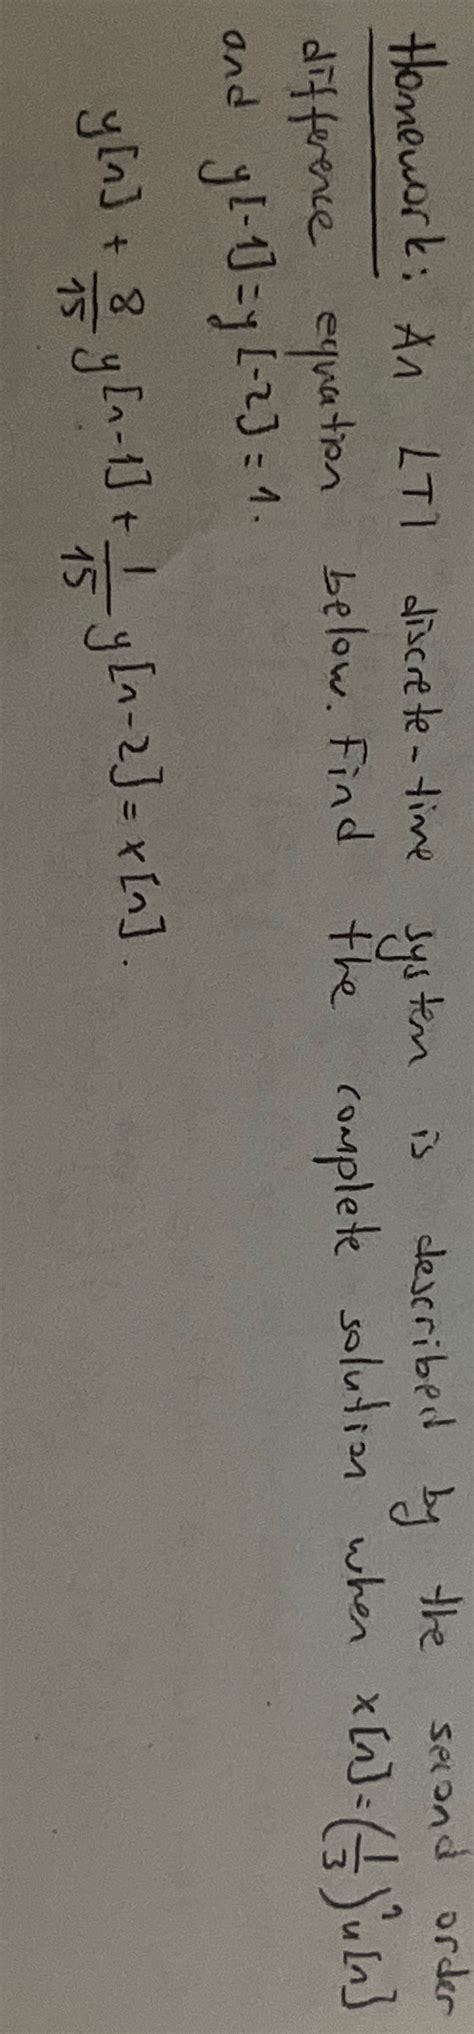 Homework: An LTI discrete-time system is described by the second order
difference equation below. Find the complete solution when x[n] = (1/3)^n u[n]
and y[-1] = y[-2] = 1.
y[n] + 8/15 y[n-1] + 1/15 y[n-2] = x[n].